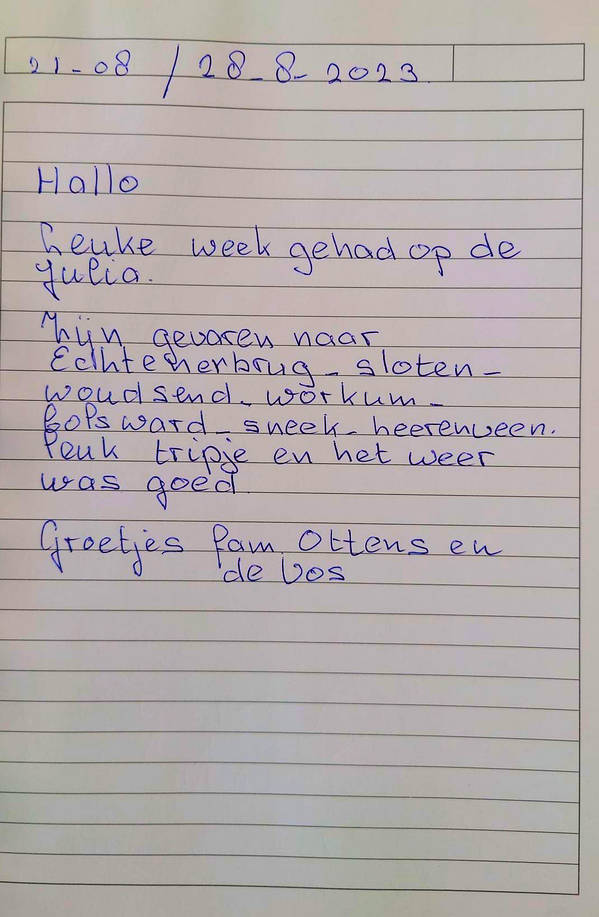 21-08 / 28-8-2023
Hallo
Leuke week gehad op de
Julia.
Zijn gevaren naar
Echtenerbrug - sloten -
woudsend - workum -
Bolsward - sneek - heerenveen.
leuk tripje en het weer
was goed
Groetjes fam. Ottens en
de Vos